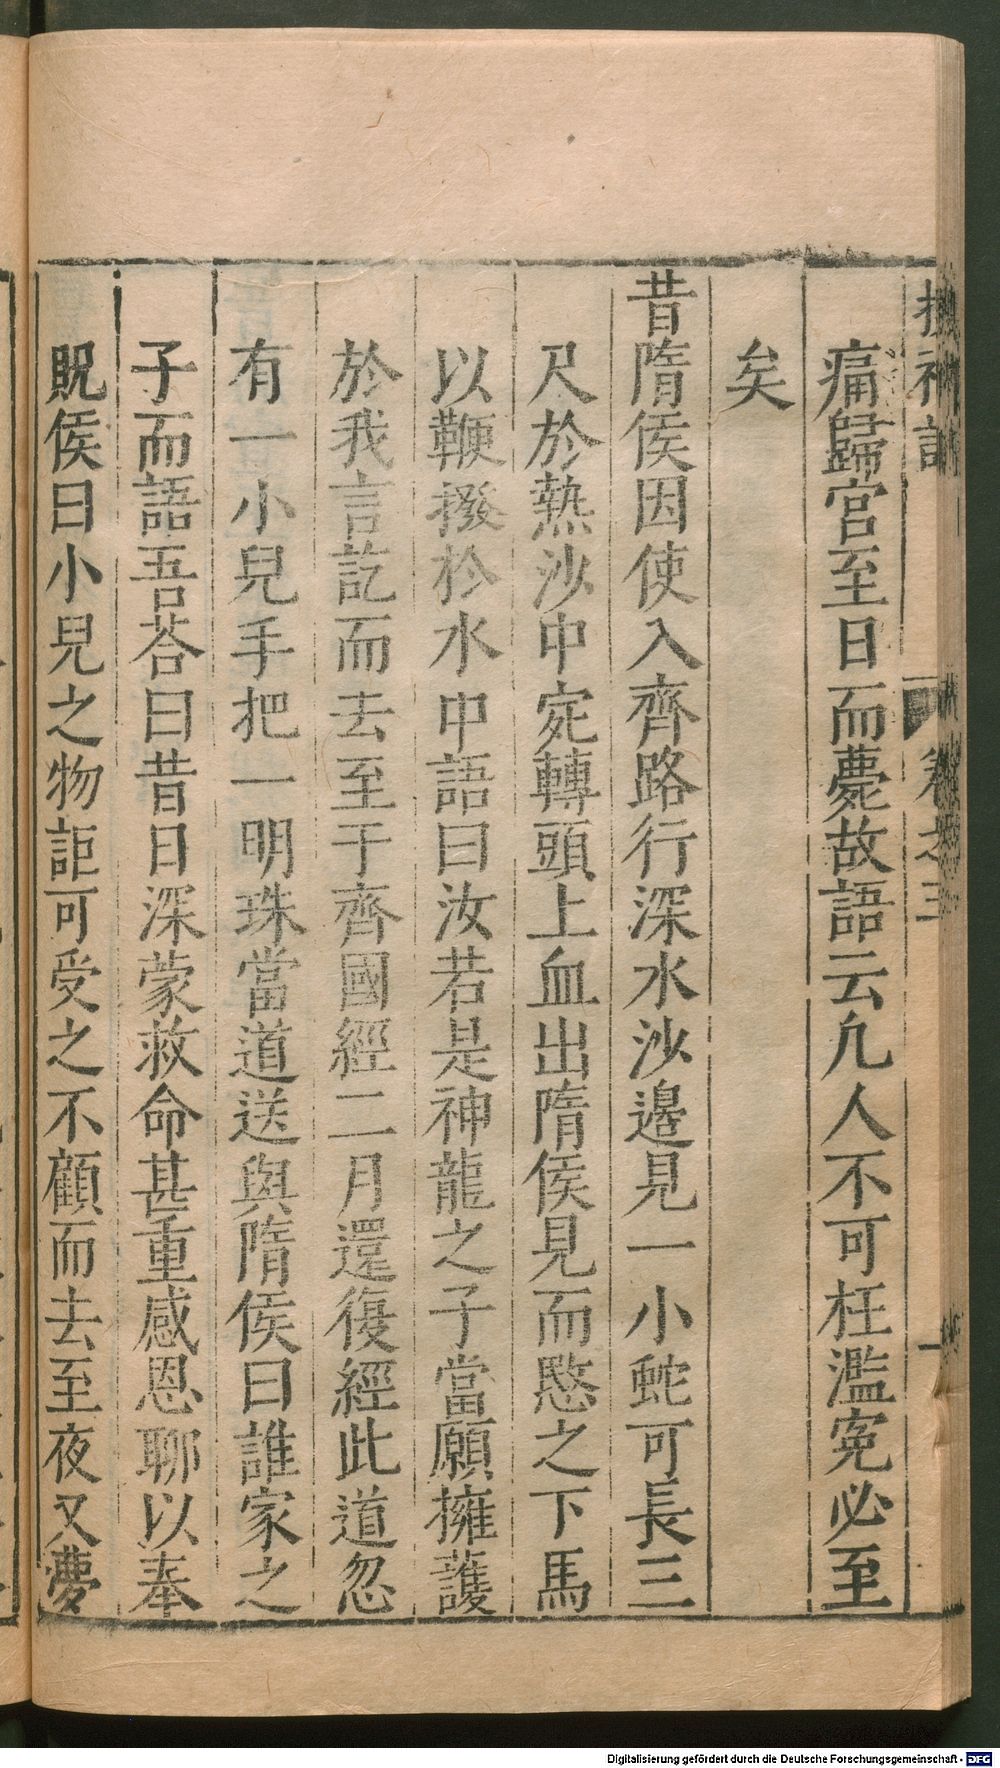 搜神記 卷之三 一
痛歸宮至日而薨故語云凢人不可枉濫寃必至
矣
昔隋侯因使入齊路行深水沙邉見一小蛇可長三
尺於熱沙中宛轉頭上血出隋侯見而愍之下馬
以鞭撥於水中語曰汝若是神龍之子當願擁護
於我言訖而去至于齊國經二月還復經此道忽
有一小兒手把一明珠當道送與隋侯曰誰家之
子而語吾荅曰昔日深蒙救命甚重感恩聊以奉
貺侯曰小兒之物詎可受之不顧而去至夜又夢
Digitalisierung gefördert durch die Deutsche Forschungsgemeinschaft - DFG